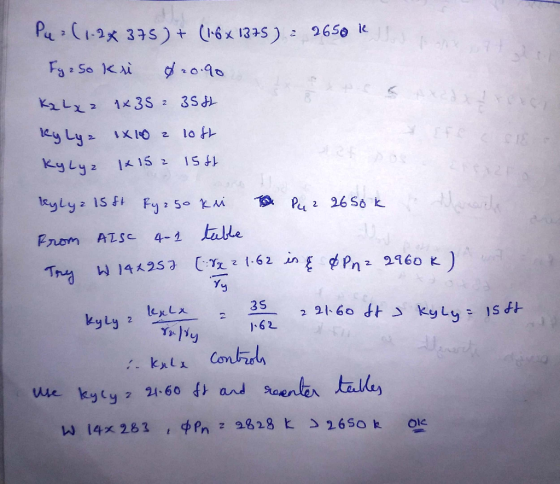 Pu = (1.2 x 375) + (1.6 x 1375) = 2650 k
Fy = 50 Ksi ϕ = 0.90
KxLx = 1x35 = 35ft
KyLy = 1x10 = 10ft
KyLy = 1x15 = 15ft
KyLy = 15ft Fy = 50 Ksi Pu = 2650 k
From AISC 4-1 table
Try W 14x257 (∵ rx/ry = 1.62 in & ϕPn = 2960 k)
KyLy = KxLx / (rx/ry) = 35/1.62 = 21.60 ft > KyLy = 15ft
∴ KxLx Controls
Use KyLy = 21.60 ft and reenter tables
W 14x283, ϕPn = 2828 k > 2650 k OK